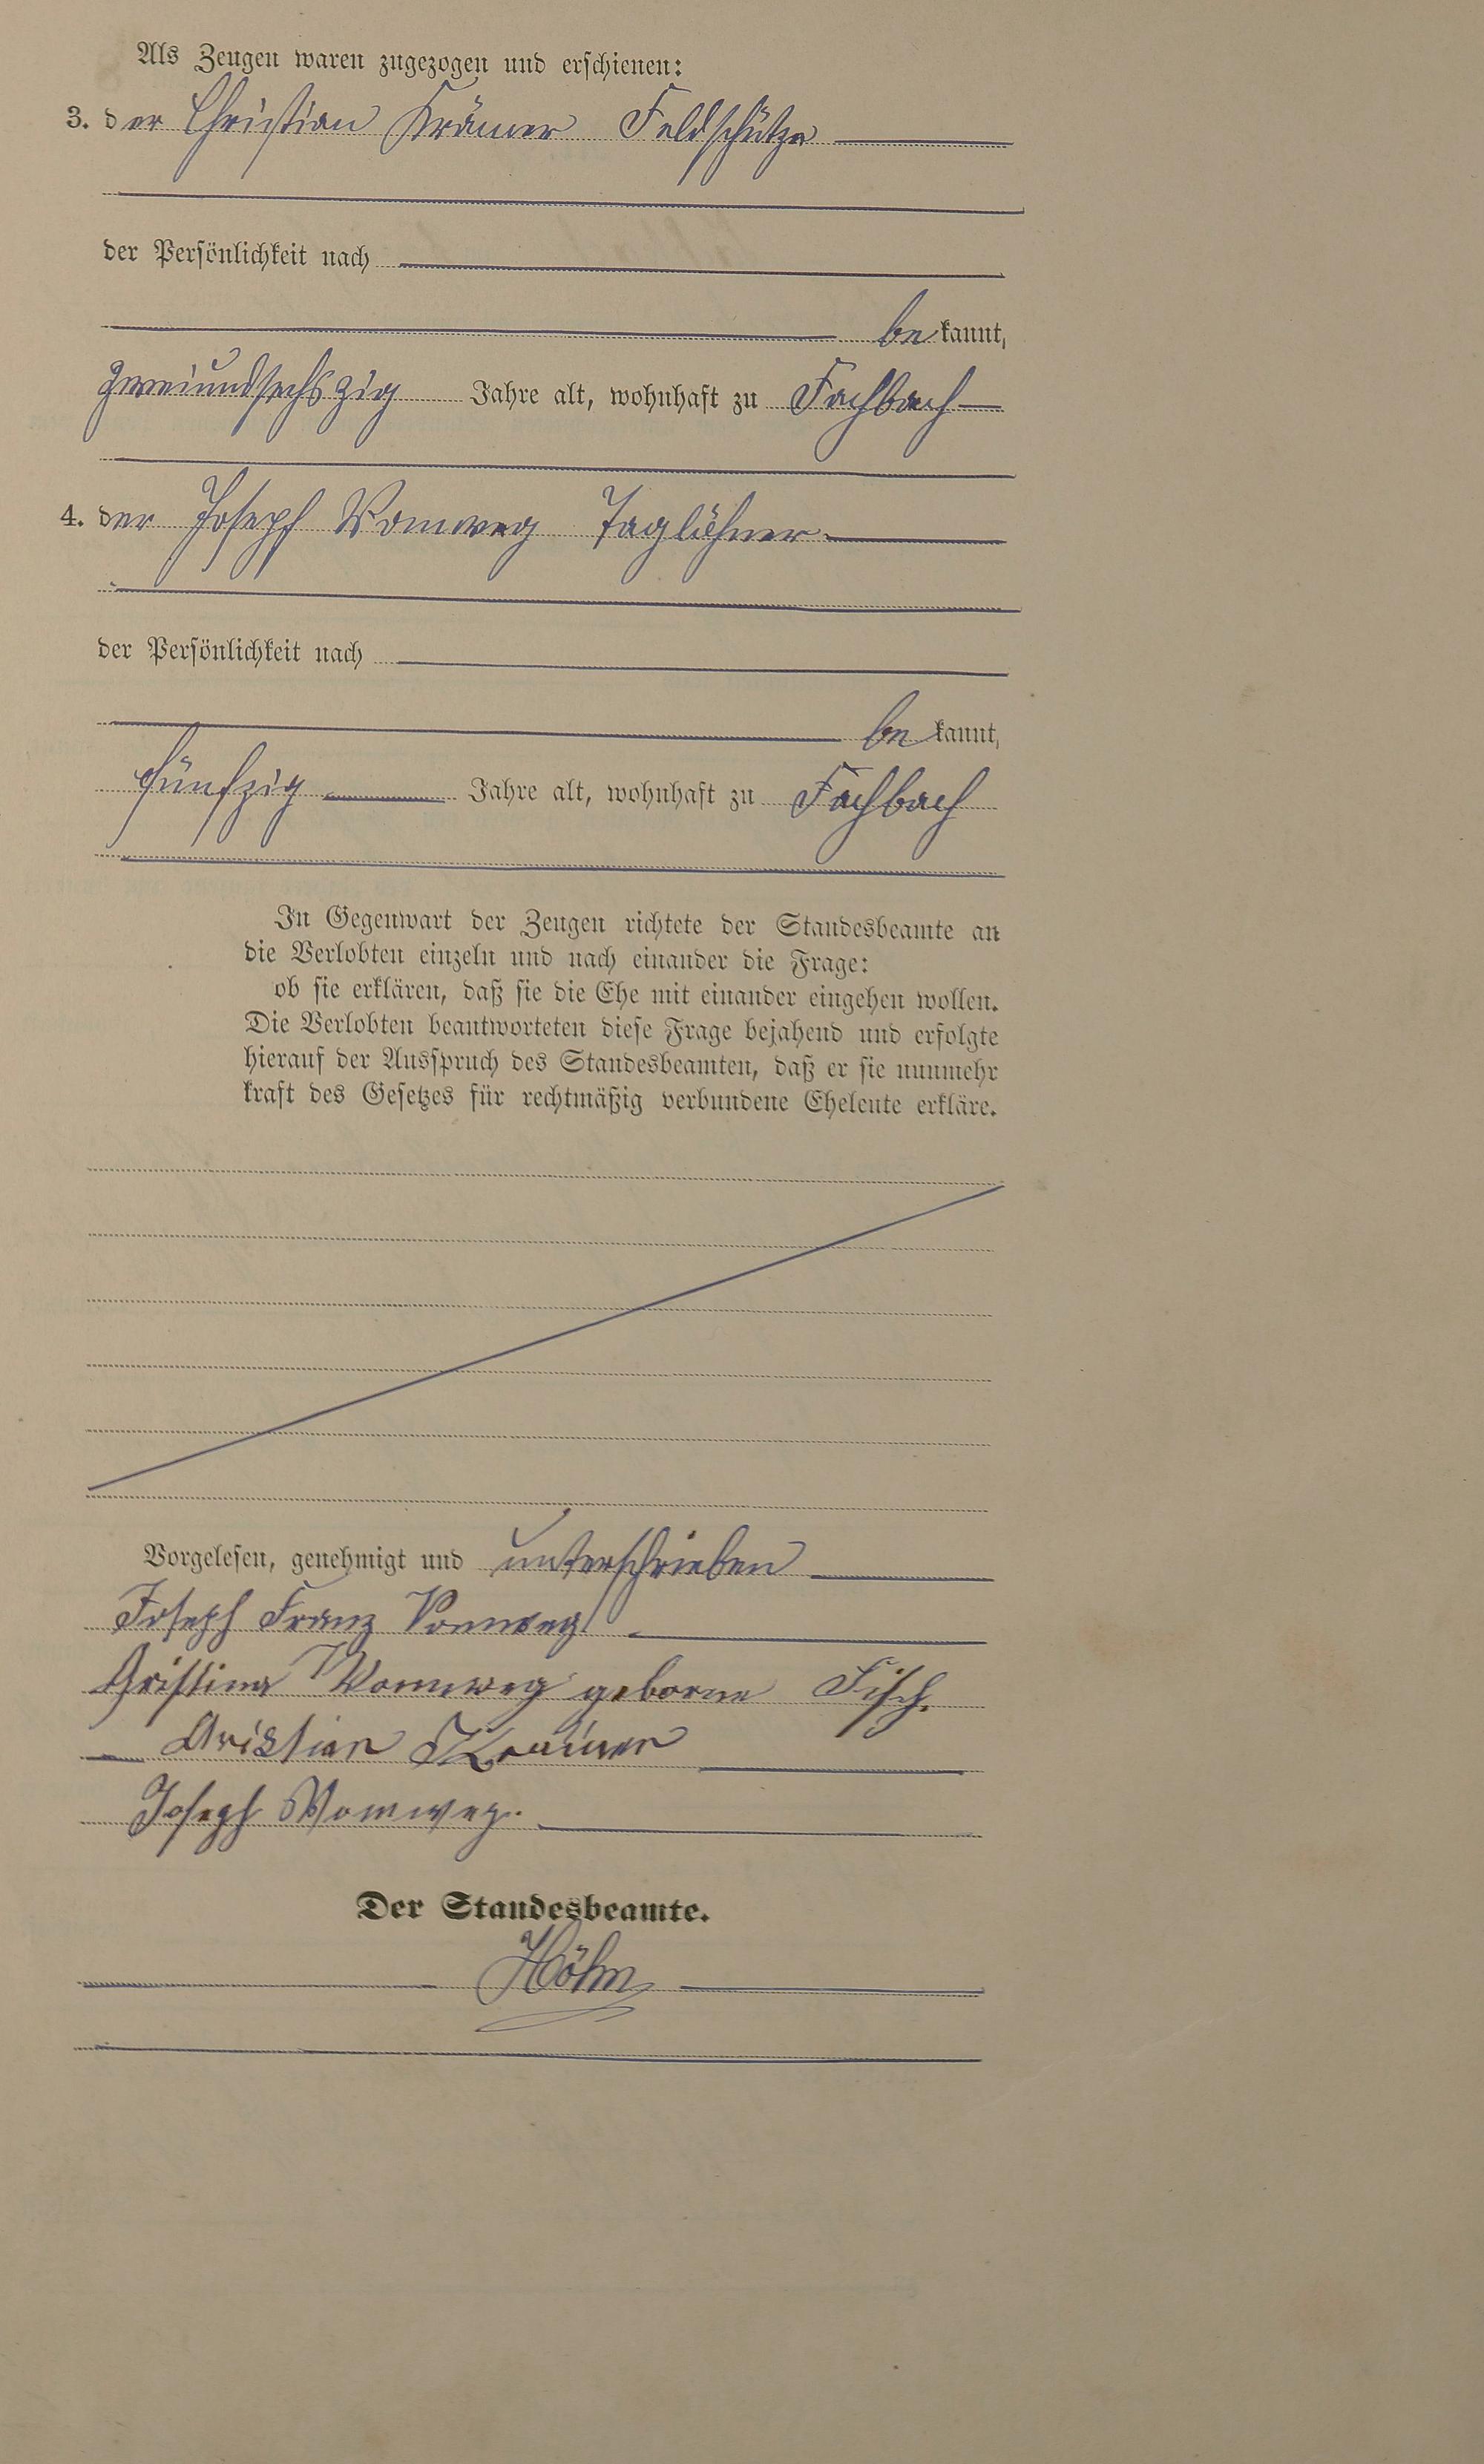 Als Zeugen waren zugezogen und erschienen:
3. der Christian Krämer Feldschütze
der Persönlichkeit nach
bekannt,
zweiundsechszig Jahre alt, wohnhaft zu Fachbach
4. der Joseph Vomweg Taglöhner
der Persönlichkeit nach
bekannt,
fünfzig Jahre alt, wohnhaft zu Fachbach
In Gegenwart der Zeugen richtete der Standesbeamte an
die Verlobten einzeln und nach einander die Frage:
ob sie erklären, daß sie die Ehe mit einander eingehen wollen.
Die Verlobten beantworteten diese Frage bejahend und erfolgte
hierauf der Ausspruch des Standesbeamten, daß er sie nunmehr
kraft des Gesetzes für rechtmäßig verbundene Eheleute erkläre.
Vorgelesen, genehmigt und unterschrieben
Joseph Franz Vomweg
Gristina Vomweg geborne Fisch.
Cristian Kraümer
Joseph Vomweg.
Der Standesbeamte.
Höhn